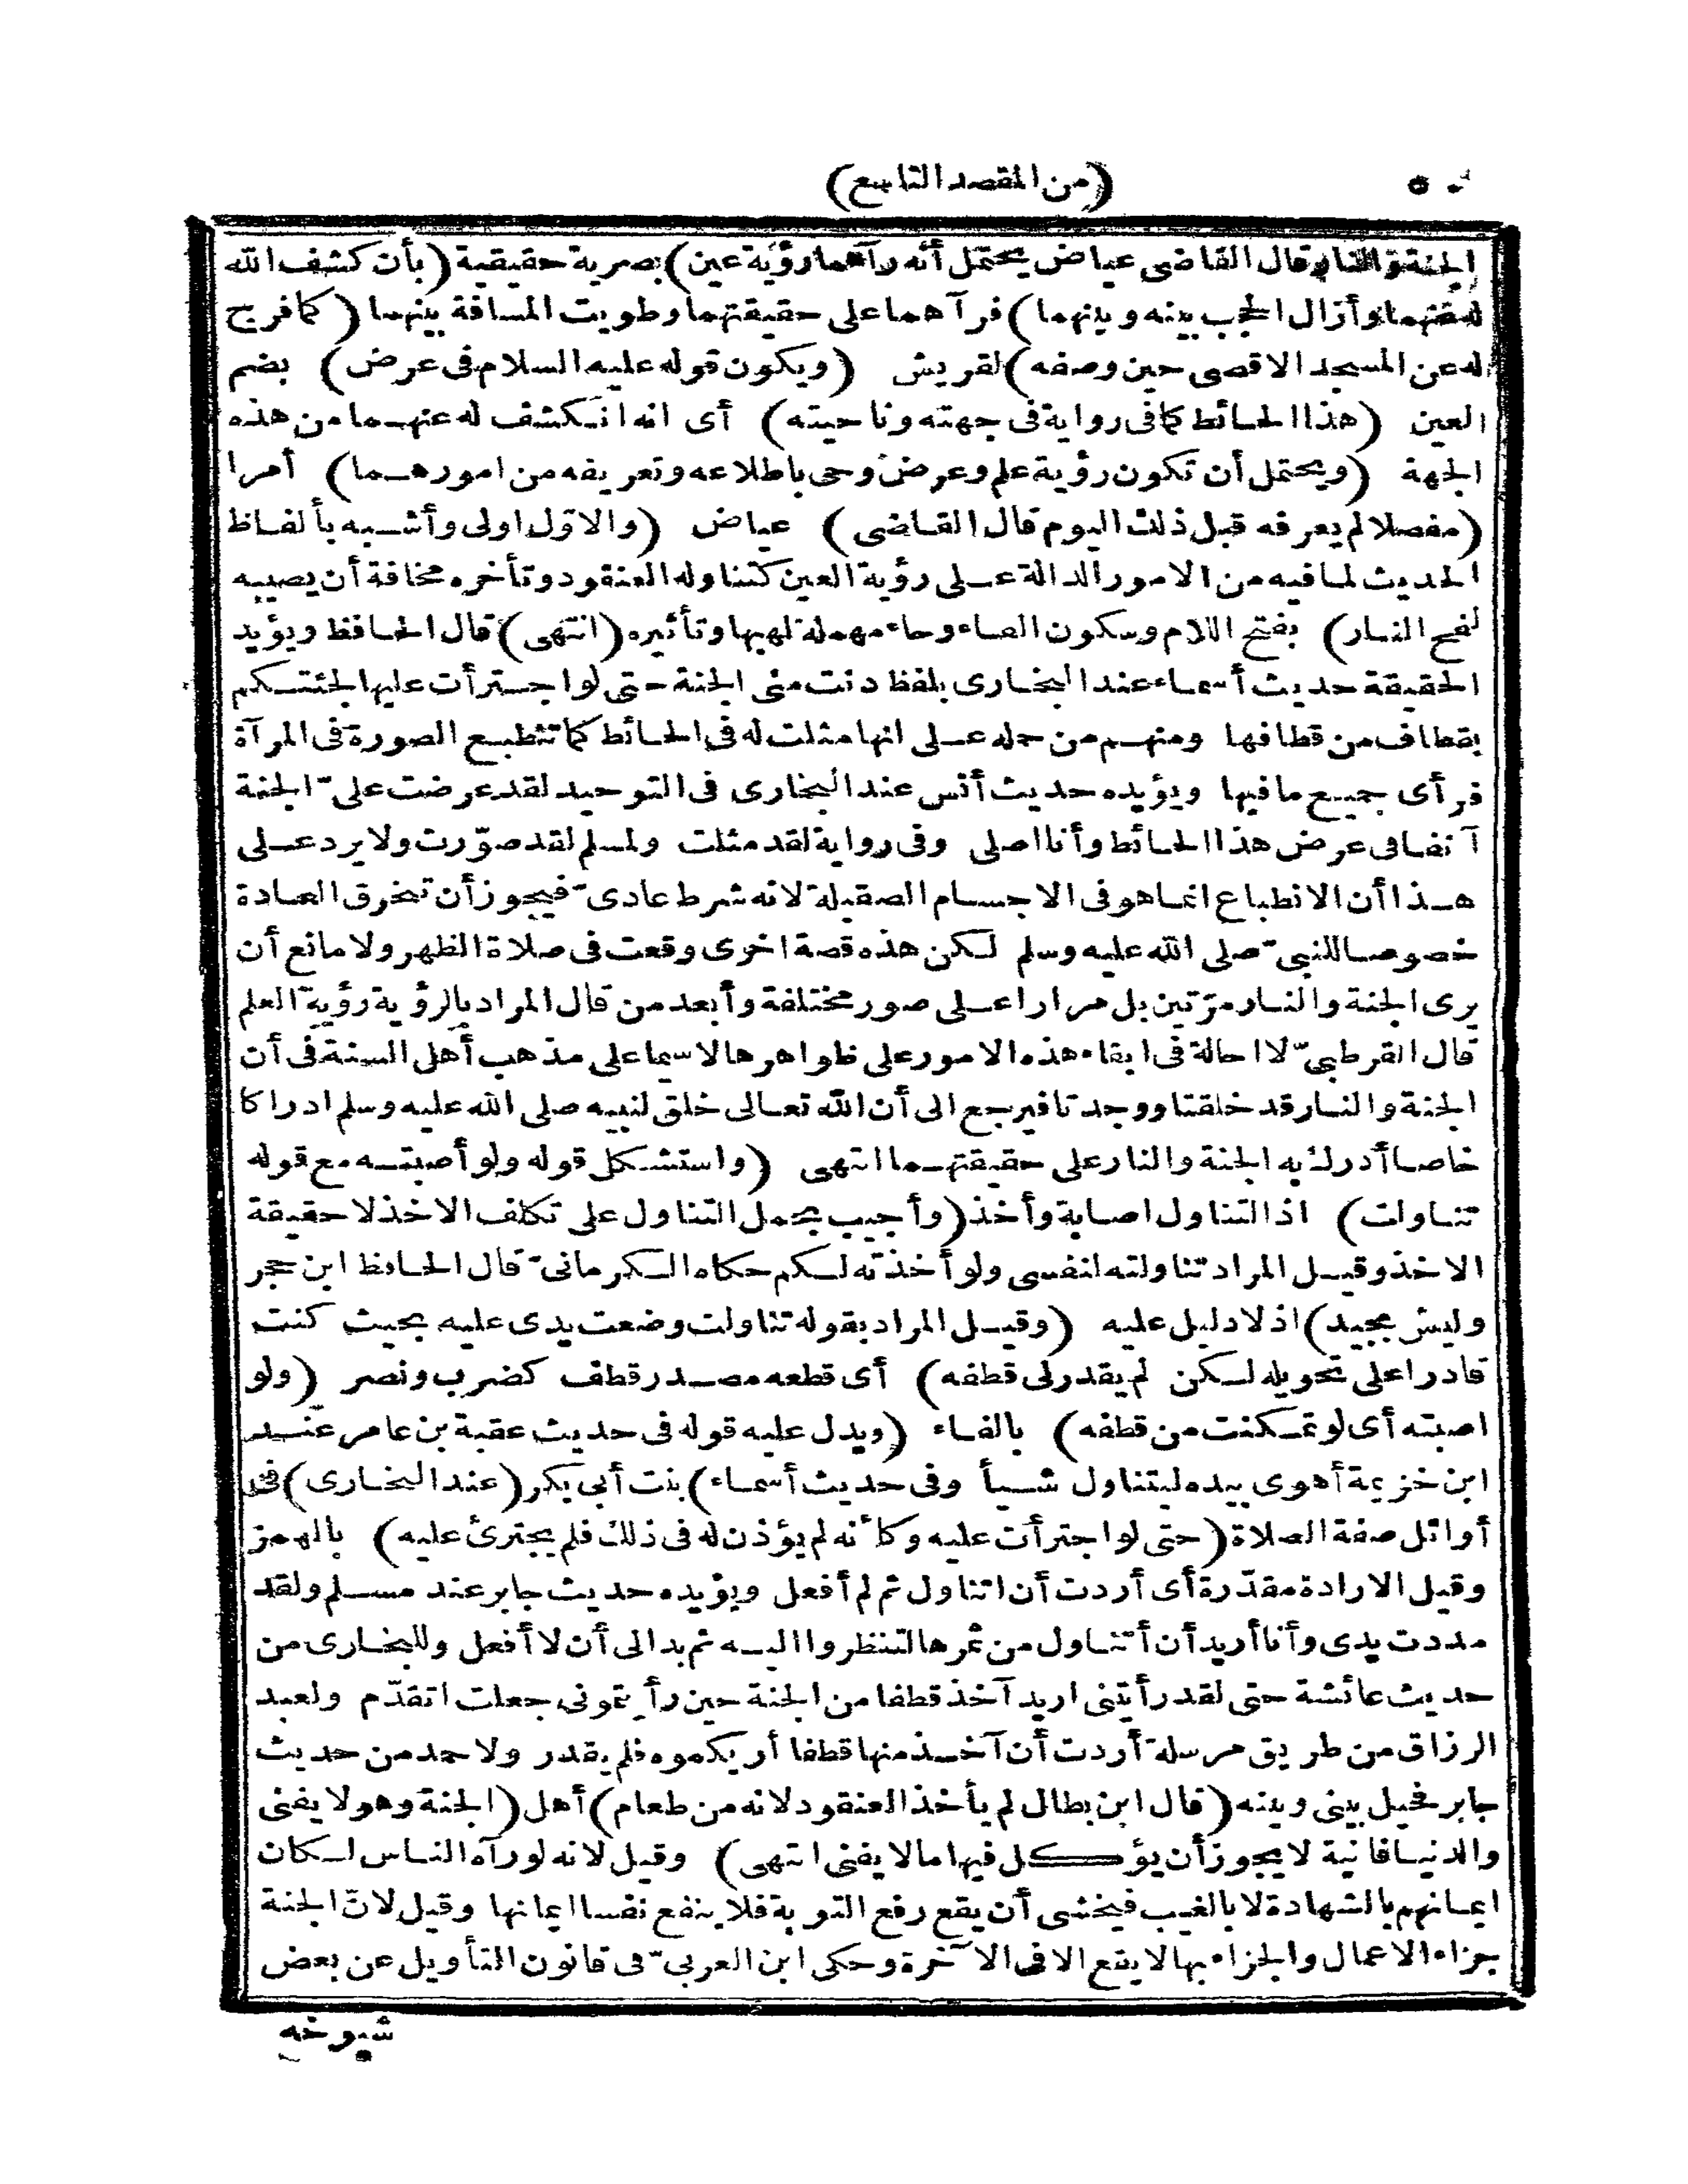 (من المقصد التاسع)
الجنة والنار قال القاضى عياض يحتمل أنه رآهما رؤية عين) بصرية حقيقية (بأن كشف الله
له عنهما وأزال الحجب بينه وبينهما) فرآهما على حقيقتهما وطويت المسافة بينهما (كما فرج
له عن المسجد الاقصى حين وصفه) لقريش (ويكون قوله عليه السلام فى عرض) بضم
العين (هذا الحائط كما فى رواية فى جهته وناحيته) أى انه انكشف له عنهما من هذه
الجهة (ويحتمل أن تكون رؤية علم وعرض وحى باطلاعه وتعريفه من امورهما) أمرا
(مفصلا لم يعرفه قبل ذلك اليوم قال القاضى) عياض (والاوّل اولى وأشبه بألفاظ
الحديث لما فيه من الامور الدالة على رؤية العين كتناوله العنقود وتأخره مخافة أن يصيبه
لفح النار) بفتح اللام وسكون الفاء وحاء مهملة لهبها وتأثيره (انتهى) قال الحافظ ويؤيد
الحقيقة حديث أسماء عند البخارى بلفظ دنت منى الجنة حتى لو اجترأت عليها لجئتكم
بقطاف من قطافها ومنهم من حمله على انها مثلت له فى الحائط كما تنطبع الصورة فى المرآة
فرأى جميع ما فيها ويؤيده حديث أنس عند البخارى فى التوحيد لقد عرضت علىّ الجنة
آنفا فى عرض هذا الحائط وأنا اصلى وفى رواية لقد مثلت ولمسلم لقد صوّرت ولا يرد على
هذا أن الانطباع انما هو فى الاجسام الصقيلة لانه شرط عادىّ فيجوز أن تنخرق العادة
خصوصا للنبىّ صلى الله عليه وسلم لكن هذه قصة اخرى وقعت فى صلاة الظهر ولا مانع أن
يرى الجنة والنار مرّتين بل مرارا على صور مختلفة وأبعد من قال المراد بالرؤية رؤية العلم
قال القرطبىّ لا احالة فى ابقاء هذه الامور على ظواهرها لاسيما على مذهب أهل السنة فى أن
الجنة والنار قد خلقتا ووجدتا فيرجع الى أن الله تعالى خلق لنبيه صلى الله عليه وسلم ادراكا
خاصا أدرك به الجنة والنار على حقيقتهما انتهى (واستشكل قوله ولو أصبته مع قوله
تناولت) اذ التناول اصابة وأخذ (وأجيب بحمل التناول على تكلف الاخذ لا حقيقة
الاخذ وقيل المراد تناولته لنفسى ولو أخذته لكم حكاه الكرمانىّ قال الحافظ ابن حجر
وليس بجيد) اذ لا دليل عليه (وقيل المراد بقوله تناولت وضعت يدى عليه بحيث كنت
قادرا على تحويله لكن لم يقدر لى قطفه) أى قطعه مصدر قطف كضرب ونصر (ولو
اصبته أى لو تمكنت من قطفه) بالفاء (ويدل عليه قوله فى حديث عقبة بن عامر عند
ابن خزيمة أهوى بيده ليتناول شيأ وفى حديث أسماء) بنت أبى بكر (عند البخارى) فى
أوائل صفة الصلاة (حتى لو اجترأت عليه وكأنه لم يؤذن له فى ذلك فلم يجترئ عليه) بالهمز
وقيل الارادة مقدّرة أى أردت أن اتناول ثم لم أفعل ويؤيده حديث جابر عند مسلم ولقد
مددت يدى وأنا أريد أن أتناول من ثمرها لتنظروا اليه ثم بدا لى أن لا أفعل وللبخارى من
حديث عائشة حتى لقد رأيتنى اريد آخذ قطفا من الجنة حين رأيتمونى جعلت اتقدّم ولعبد
الرزاق من طريق مرسلة أردت أن آخذ منها قطفا أريكموه فلم يقدر ولاحمد من حديث
جابر فحيل بينى وبينه (قال ابن بطال لم يأخذ العنقود لانه من طعام) أهل (الجنة وهو لا يفنى
والدنيا فانية لا يجوز أن يؤكل فيها ما لا يفنى انتهى) وقيل لانه لو رآه الناس لكان
ايمانهم بالشهادة لا بالغيب فيخشى أن يقع رفع التوبة فلا ينفع نفسا ايمانها وقيل لانّ الجنة
جزاء الاعمال والجزاء بها لا يقع الا فى الآخرة وحكى ابن العربىّ فى قانون التأويل عن بعض
شيوخه